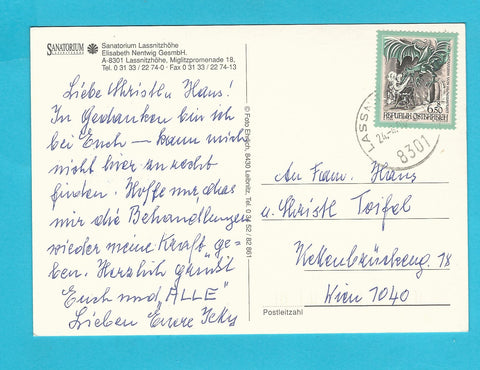 SANATORIUM
Sanatorium Lassnitzhöhe
Elisabeth Nentwig GesmbH.
A-8301 Lassnitzhöhe, Miglitzpromenade 18,
Tel. 0 31 33 / 22 74-0 · Fax 0 31 33 / 22 74-13
Liebe Christl u Hans!
In Gedanken bin ich
bei Euch – kann mich
nicht hier zu recht
finden. Hoffe nur, dass
mir die Behandlungen
wieder meine Kraft ge-
ben. Herzlich grüsst
Euch und „ALLE"
Lieben Eure
© Foto Ehrlich, 8430 Leibnitz, Tel. 0 34 52 / 82 861
6.50
REPUBLIK ÖSTERREICH
LASSN
8301
An Fam. Hans
u. Christl Toifel
Kettenbrückeng. 18
Wien 1040
Postleitzahl